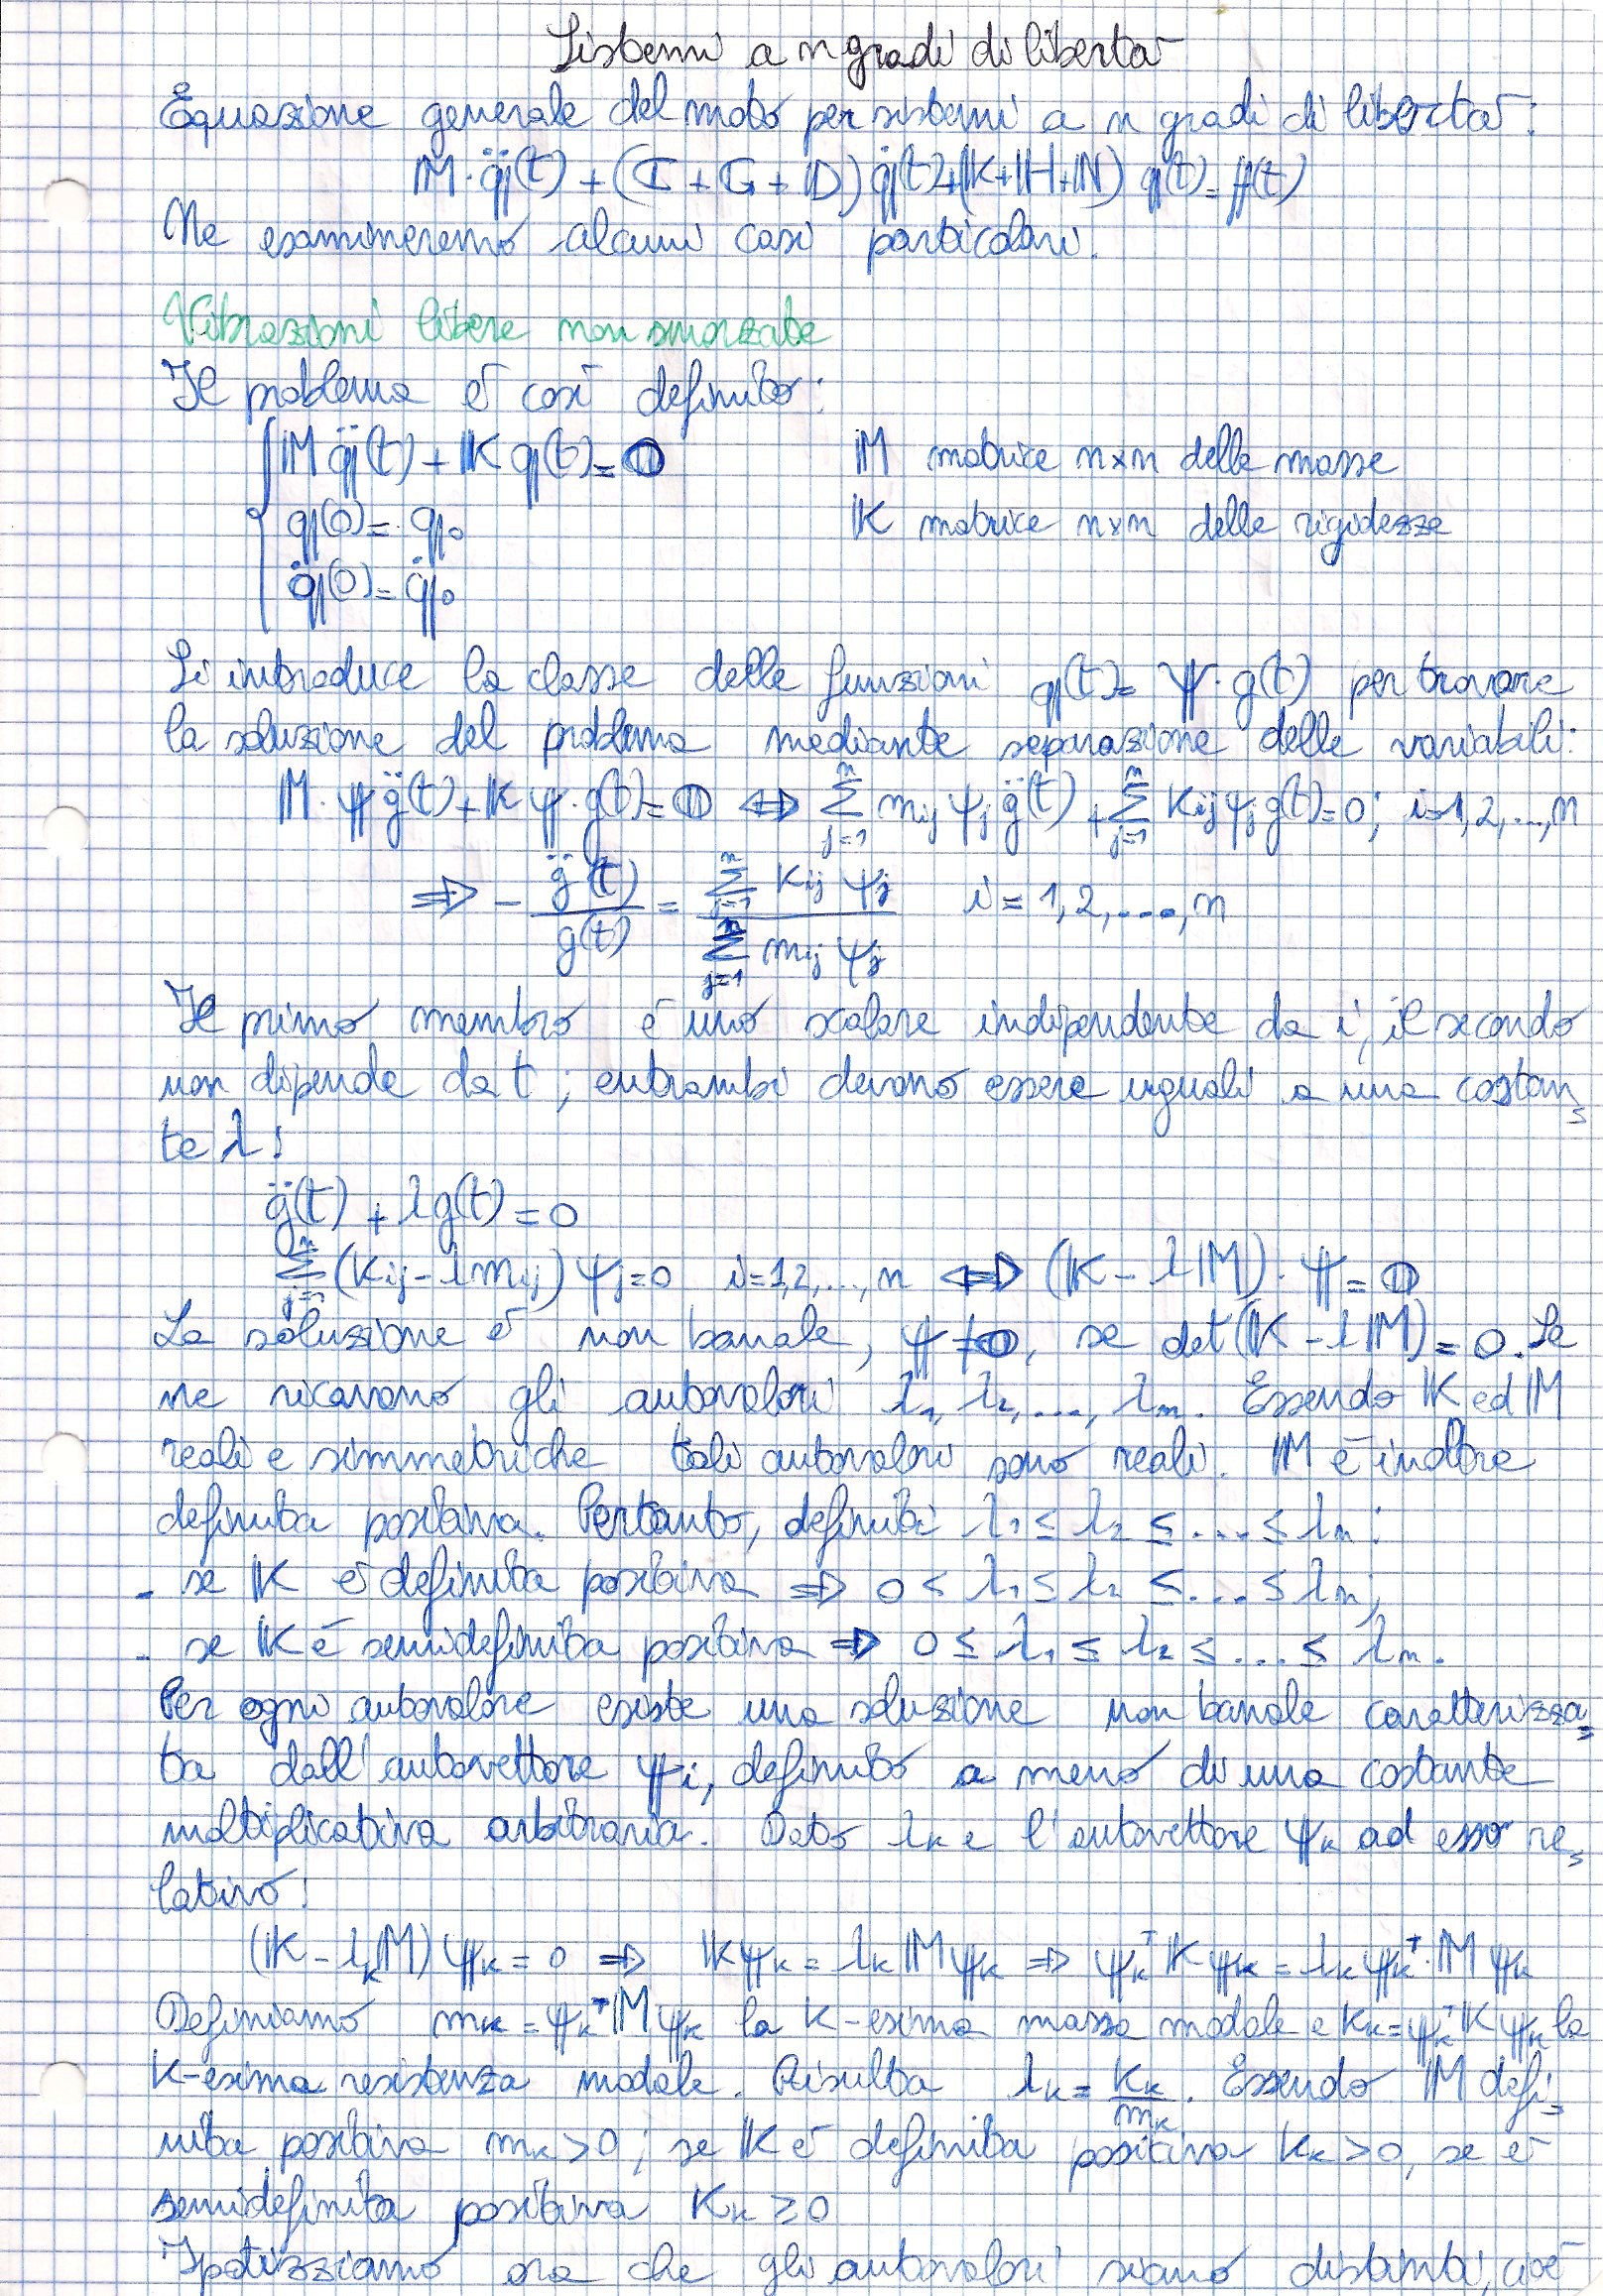 Sistemi a n gradi di libertà
Equazione generale del moto per sistemi a n gradi di libertà:
𝕄·q̈(t) + (ℂ + 𝔾 + 𝔻) q̇(t) + (𝕂+ℍ+ℕ) q(t) = f(t)
Ne esamineremo alcuni casi particolari.
Vibrazioni libere non smorzate
Il problema è così definito:
𝕄 q̈(t) + 𝕂 q(t) = 𝟘 𝕄 matrice n×n delle masse
q(0) = q₀ 𝕂 matrice n×n delle rigidezze
q̇(0) = q̇₀
Si introduce la classe delle funzioni q(t) = ψ·g(t) per trovare
la soluzione del problema mediante separazione delle variabili:
𝕄·ψ g̈(t) + 𝕂 ψ·g(t) = 𝟘 ⇔ Σ_{j=1}^{n} m_ij ψ_j g̈(t) + Σ_{j=1}^{n} K_ij ψ_j g(t) = 0; i=1,2,...,n
⇒ - g̈(t)/g(t) = Σ_{j=1}^{n} K_ij ψ_j / Σ_{j=1}^{n} m_ij ψ_j i = 1,2,....,n
Il primo membro è uno scalare indipendente da i, il secondo
non dipende da t; entrambi devono essere uguali a una costan=
te λ:
g̈(t) + λg(t) = 0
Σ_{j=1}^{n} (K_ij - λm_ij) ψ_j = 0 i=1,2,...,n ⇔ (𝕂 - λ𝕄)·ψ = 𝟘
La soluzione è non banale, ψ ≠ 𝟘, se det(𝕂 - λ𝕄) = 0. Se
ne ricavano gli autovalori λ₁, λ₂, ..., λₙ. Essendo 𝕂 ed 𝕄
reali e simmetriche tali autovalori sono reali. 𝕄 è inoltre
definita positiva. Pertanto, definiti λ₁ ≤ λ₂ ≤ .... ≤ λₙ:
- se 𝕂 è definita positiva ⇒ 0 < λ₁ ≤ λ₂ ≤ .... ≤ λₙ;
- se 𝕂 è semidefinita positiva ⇒ 0 ≤ λ₁ ≤ λ₂ ≤ .... ≤ λₙ.
Per ogni autovalore esiste una soluzione non banale caratterizza=
ta dall'autovettore ψᵢ, definito a meno di una costante
moltiplicativa arbitraria. Dato λₖ e l'autovettore ψₖ ad esso re=
lativo:
(𝕂 - λₖ𝕄) ψₖ = 0 ⇒ 𝕂ψₖ = λₖ𝕄ψₖ ⇒ ψₖᵀ𝕂ψₖ = λₖψₖᵀ·𝕄ψₖ
Definiamo mₖ = ψₖᵀ𝕄ψₖ la K-esima massa modale e Kₖ = ψₖᵀ𝕂ψₖ la
K-esima resistenza modale. Risulta λₖ = Kₖ/mₖ. Essendo 𝕄 defi=
nita positiva mₖ > 0; se 𝕂 è definita positiva Kₖ > 0, se è
semidefinita positiva Kₖ ≥ 0
Ipotizziamo ora che gli autovalori siano distinti, cioè